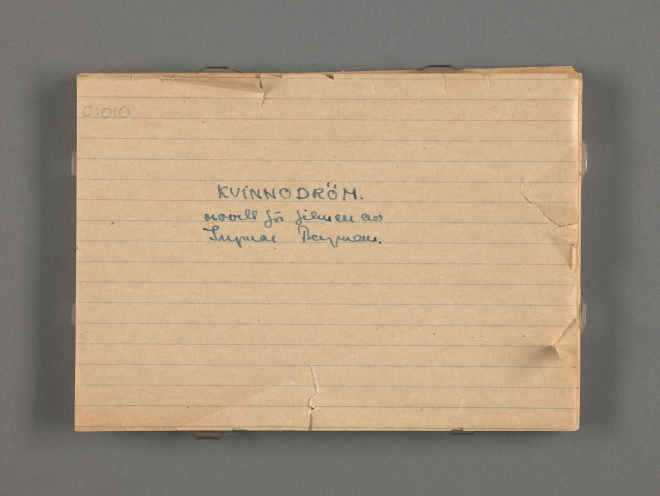 C:010
KVINNODRÖM.
novell för filmen av
Ingmar Bergman.